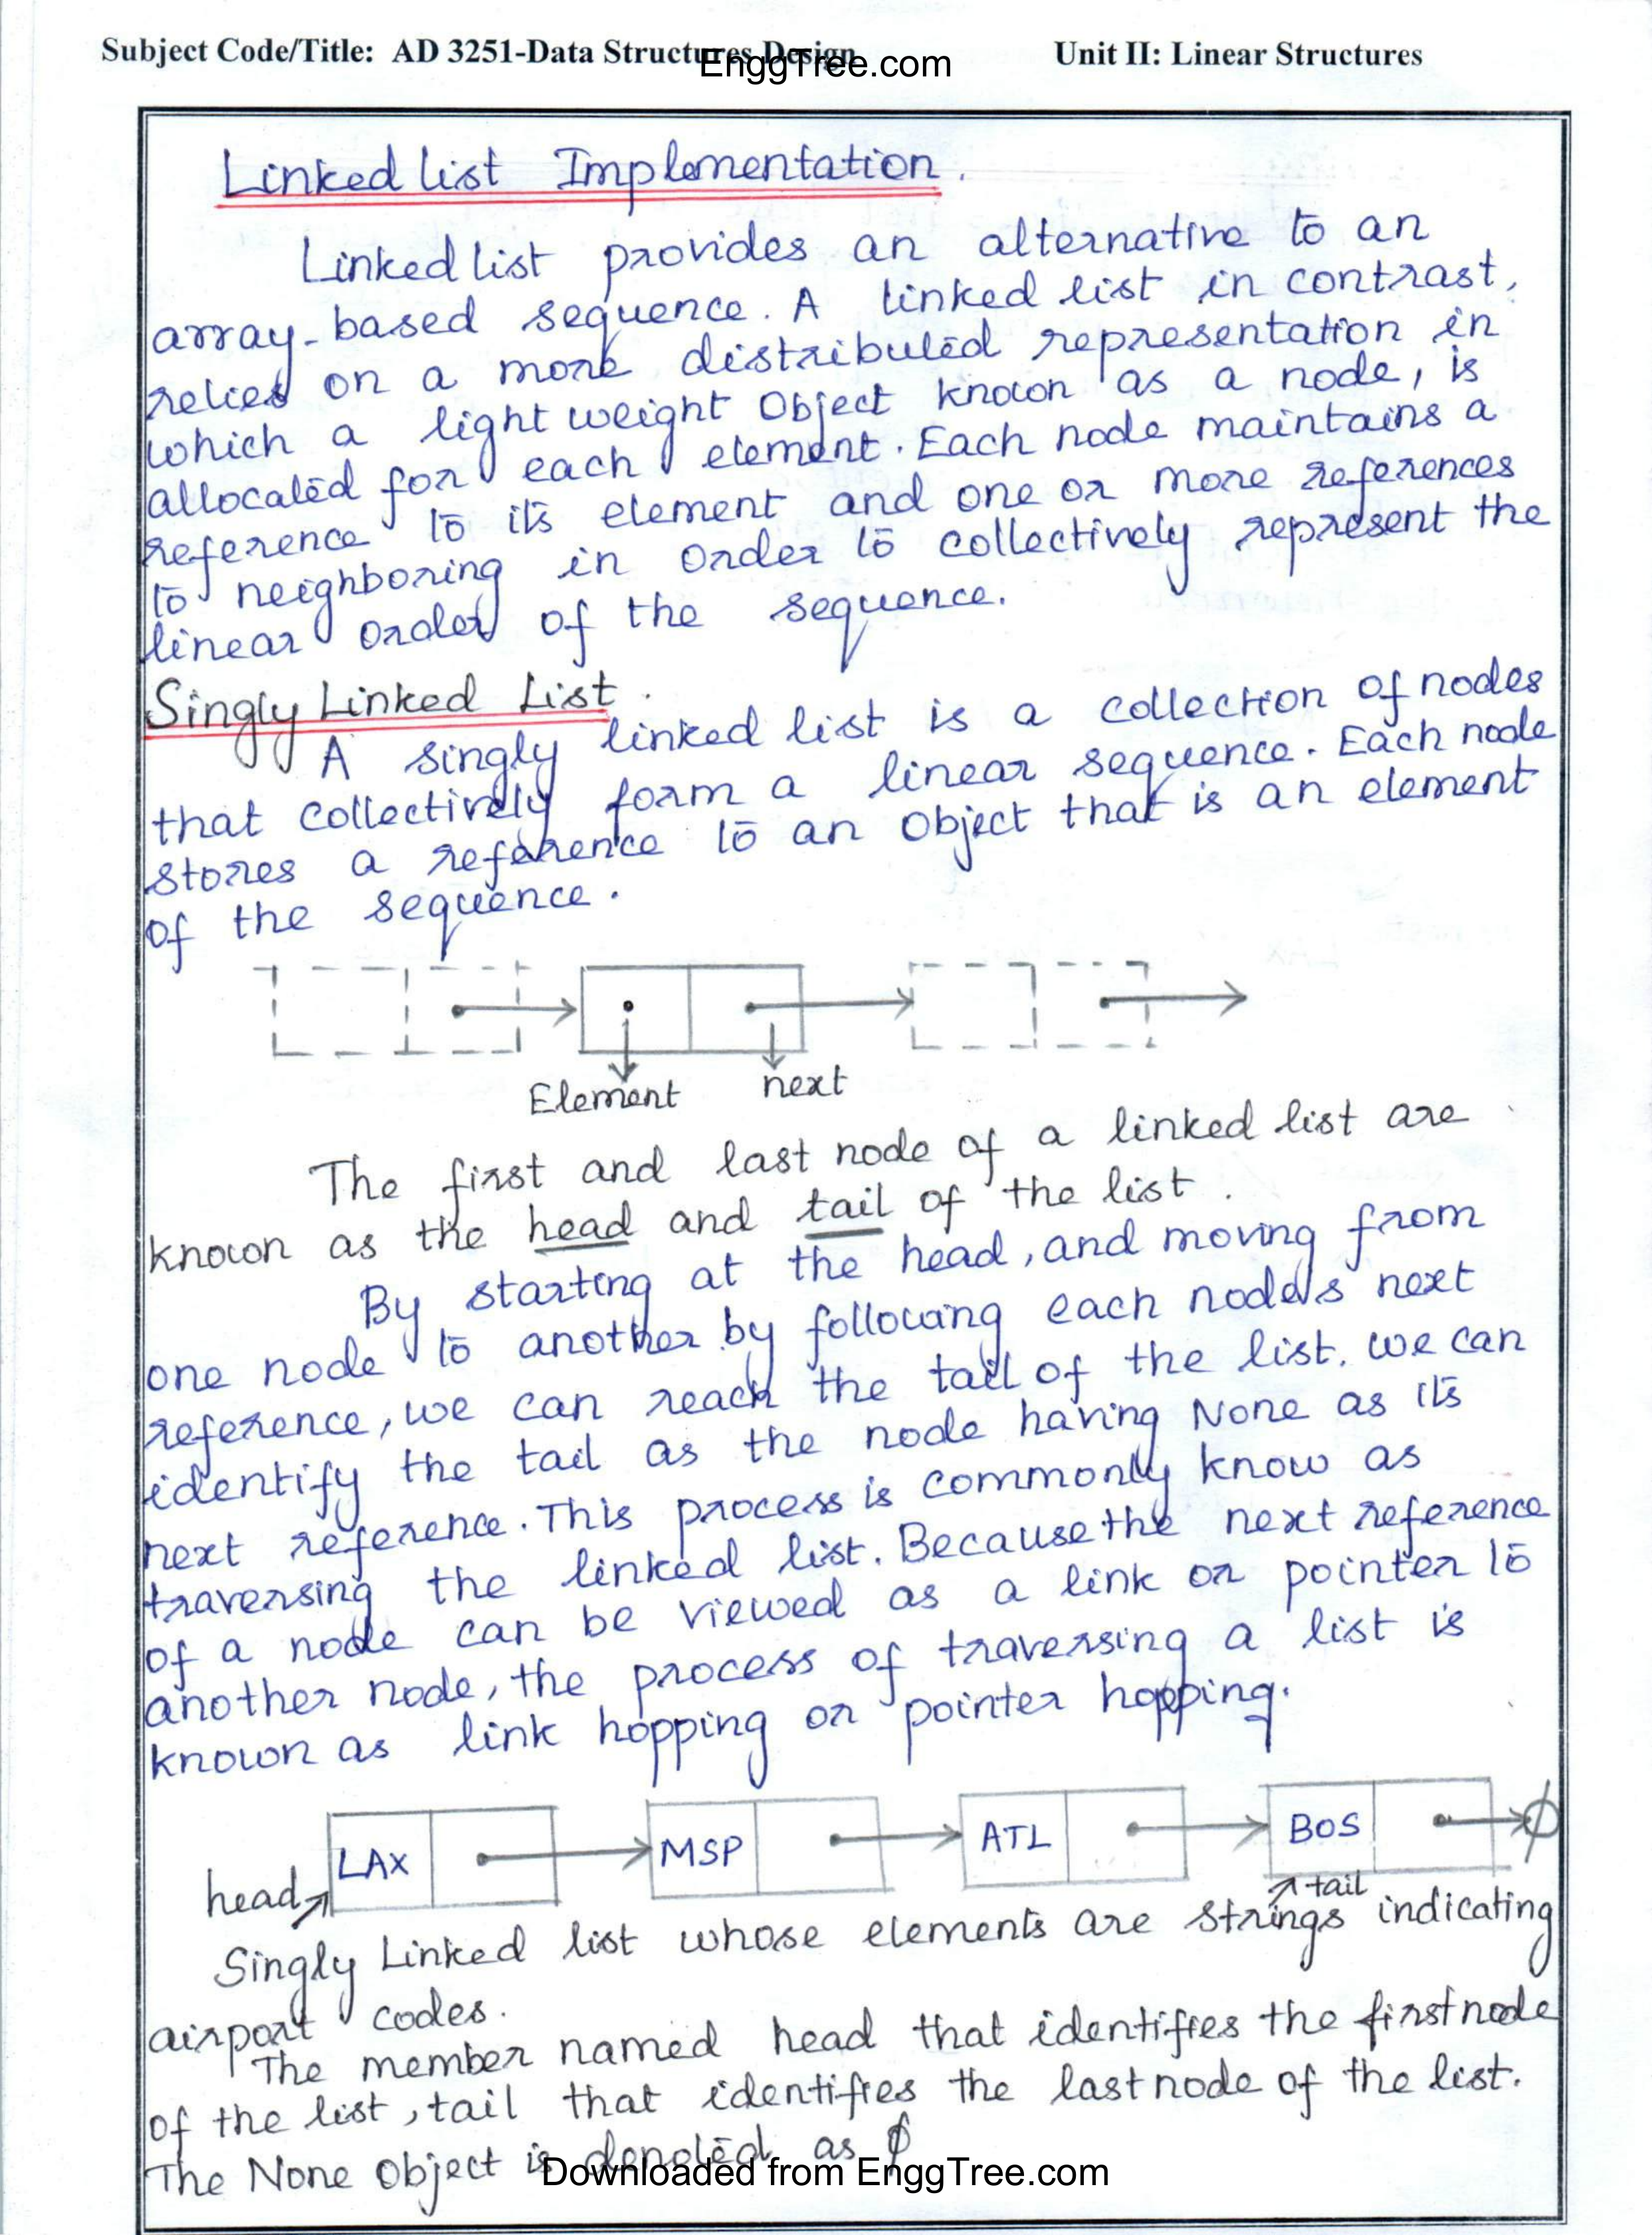 Subject Code/Title: AD 3251-Data Structures Design Unit II: Linear Structures
EnggTree.com
Linked list Implementation.
Linked list provides an alternative to an
array-based sequence. A linked list in contrast,
relies on a more distributed representation in
which a light weight Object known as a node, is
allocated for each element. Each node maintains a
reference to its element and one or more references
to neighboring in order to collectively represent the
linear order of the sequence.
Singly Linked List.
A singly linked list is a collection of nodes
that collectively form a linear sequence. Each node
stores a reference to an object that is an element
of the sequence.
Element next
The first and last node of a linked list are
known as the head and tail of the list.
By starting at the head, and moving from
one node to another by following each node's next
reference, we can reach the tail of the list. we can
identify the tail as the node having None as its
next reference. This process is commonly know as
traversing the linked list. Because the next reference
of a node can be viewed as a link or pointer to
another node, the process of traversing a list is
known as link hopping or pointer hopping.
LAX MSP ATL BOS ϕ
head tail
Singly Linked list whose elements are strings indicating
airport codes.
The member named head that identifies the first node
of the list, tail that identifies the last node of the list.
The None Object is denoted as ϕ
Downloaded from EnggTree.com